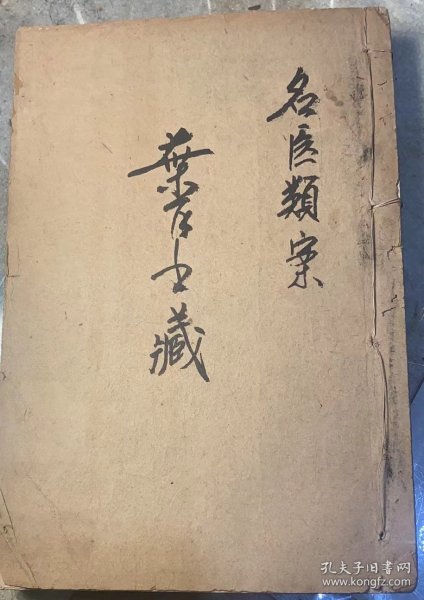 名医類案
葉
藏
孔夫子旧书网
www.kongfz.com